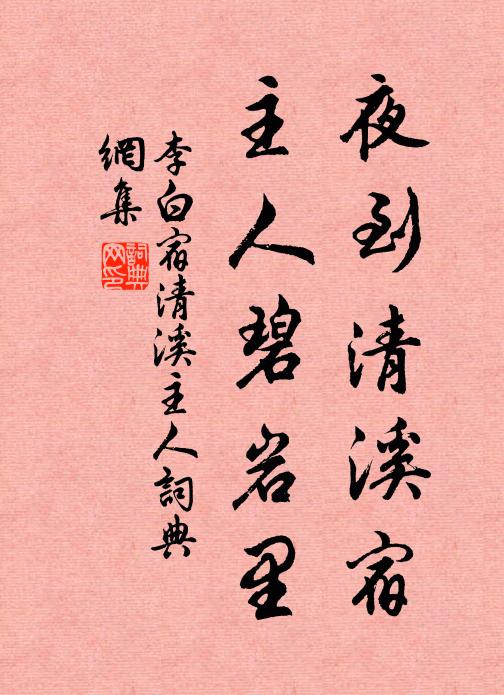 夜到清溪宿
主人碧岩里
李白宿清溪主人詞典
網集
詞典
网印